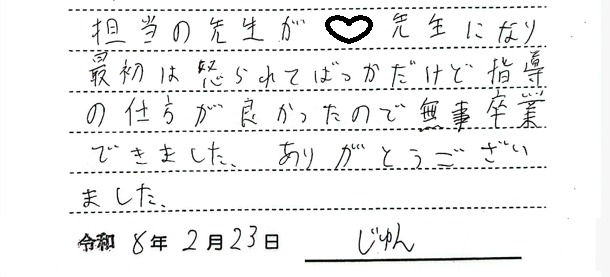 担当の先生が♡先生になり
最初は怒られてばっかだけど指導
の仕方が良かったので無事卒業
できました、ありがとうござい
ました、
令和8年2月23日 じゅん